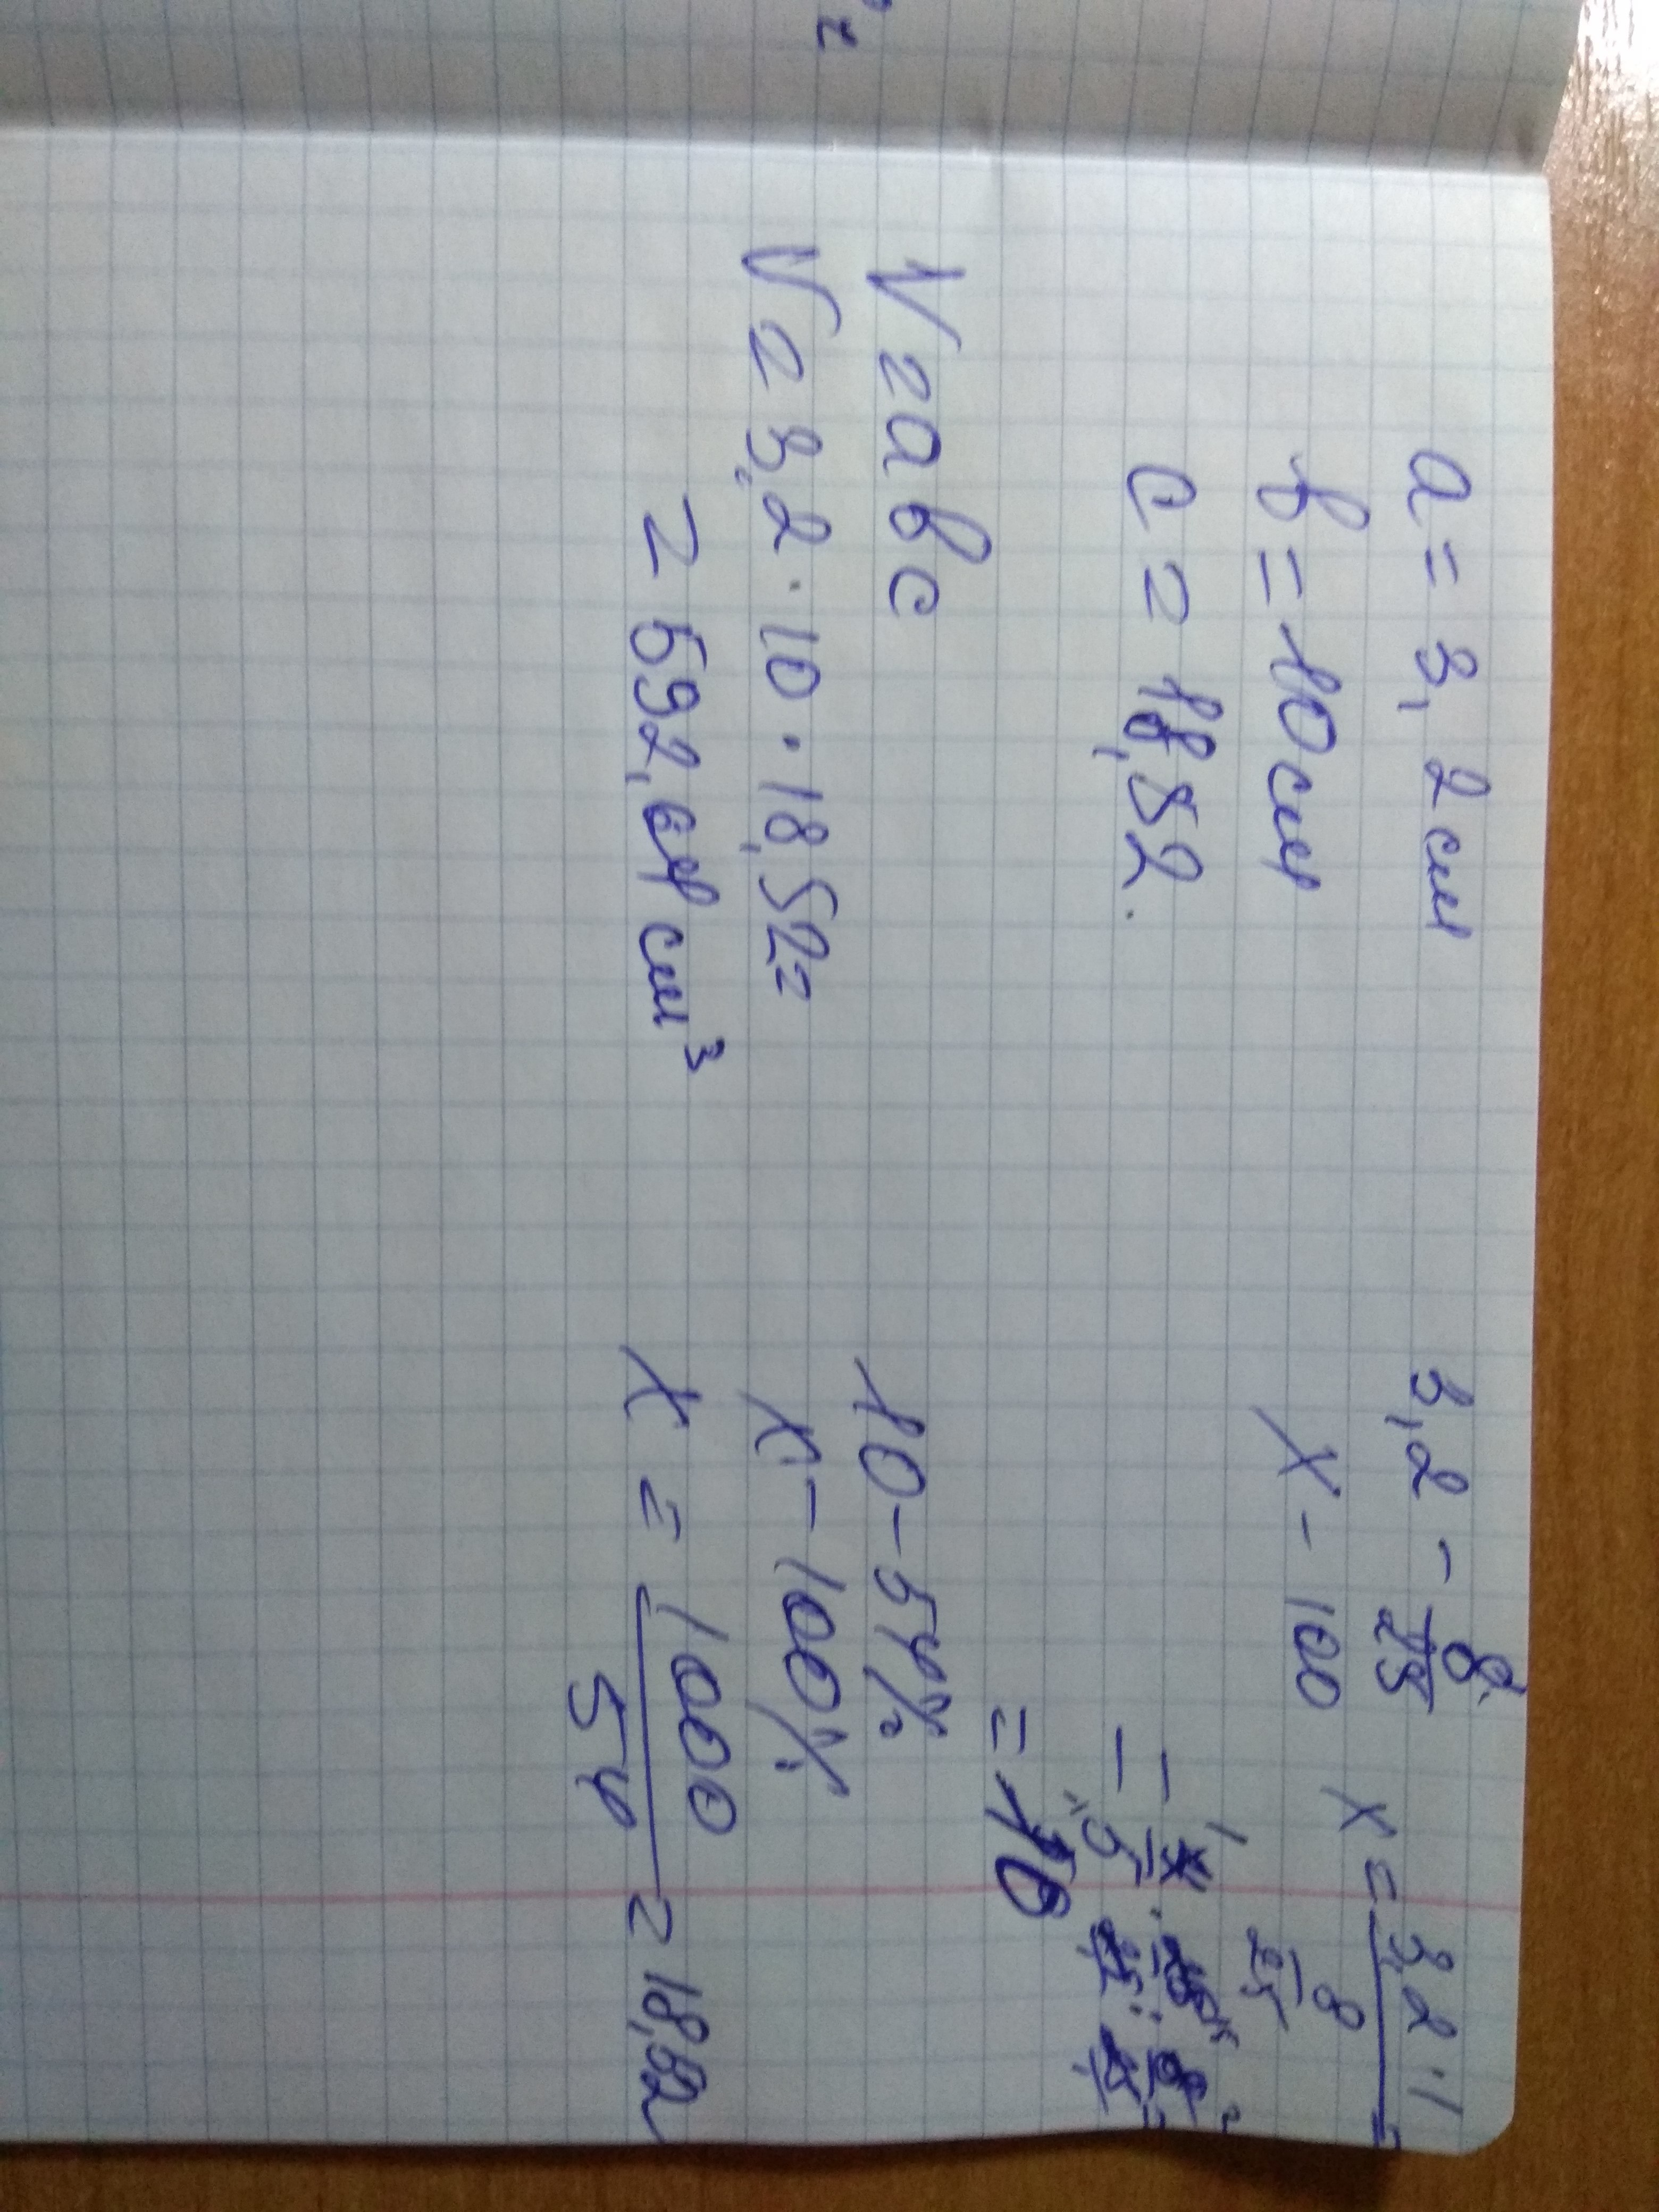 a = 3,2 см
b = 10 см
c = 18,52.
V = abc
V = 3,2 · 10 · 18,52 =
= 592,64 см³
3,2 - 8/25
x - 100
x = 3,2 · 1 / 8/25 =
= 10
10 - 54%
x - 100%
x = 1000/54 = 18,52